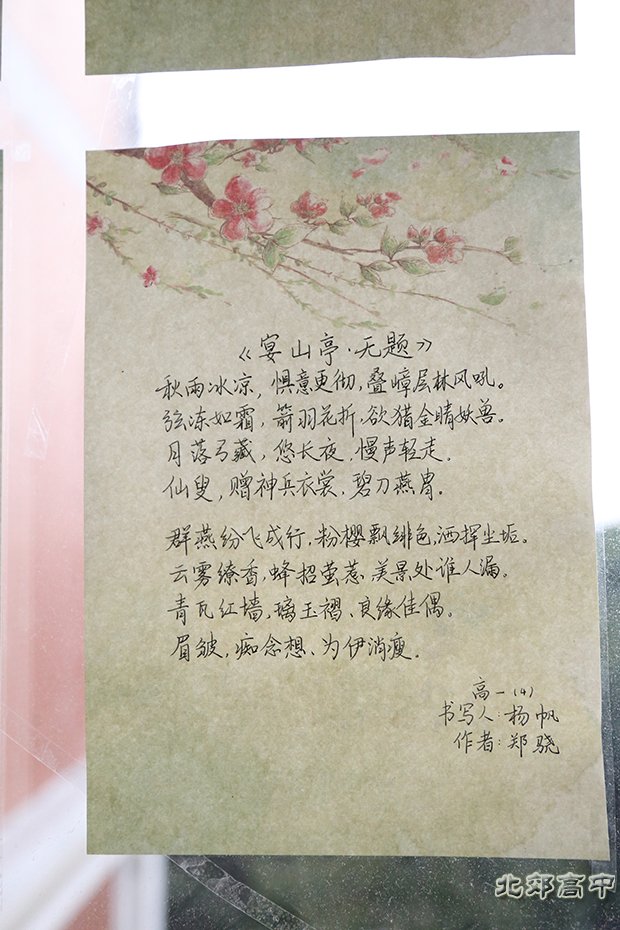 《宴山亭·无题》
秋雨冰凉，惧意更彻，叠嶂层林风吼。
弦冻如霜，箭羽花折，欲猎金睛妖兽。
月落弓藏，悠长夜，慢声轻走。
仙叟，赠神兵衣裳，碧刀燕胄。
群燕纷飞成行，粉樱飘绯色，洒挥尘垢。
云雾缭香，蜂招萤惹、美景处谁人漏。
青瓦红墙，璃玉褶、良缘佳偶。
眉皱，痴念想、为伊消瘦。
高一（4）
书写人：杨帆
作者：郑骁
北郊高中